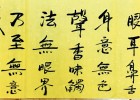 眼耳鼻舌
身意無色
聲香味觸
法無眼界
乃至無意